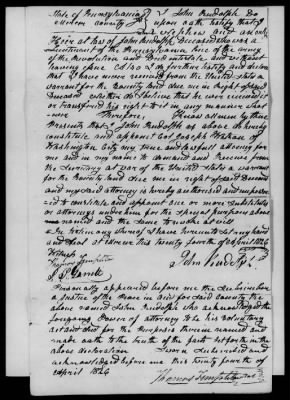 State of Pennsylvania } I John Rudolph do
county } upon oath testify that I
am nephew and
Heir at law of John Rudolph deceased who was a
Lieutenant of the Pennsylvania line of the army
of the Revolution and died intestate and without
leaving issue. I also do further testify and declare
that I have never received from the United States a
warrant for the bounty land due me in right of said
Deceased neither do I believe that he ever received
or transferred his right to it in any manner what
ever Therefore, Know all men by these
Presents that I John Rudolph as above do hereby
constitute and appoint Joseph Watson of
Washington City my true and lawful attorney for
me and in my name to demand and receive from
the Secretary at War of the United States a warrant
for the bounty land due me in right of said Deceased
and my said attorney is hereby authorised and empowered
to constitute and appoint one or more substitutes
or attorneys under him for the special purposes above
named and the same to revoke at will
In testimony whereof I have hereunto set my hand
and seal at this twenty fourth of April 1824
Witness
John Rudolph
Personally appeared before me the subscriber
a Justice of the Peace in and for said county the
above named John Rudolph who acknowledged the
foregoing Power of attorney to be his voluntary
act and deed for the purposes therein named and
made oath to the truth of the facts set forth in the
above declaration Sworn subscribed and
acknowledged before me this twenty fourth of
April 1824
Thomas